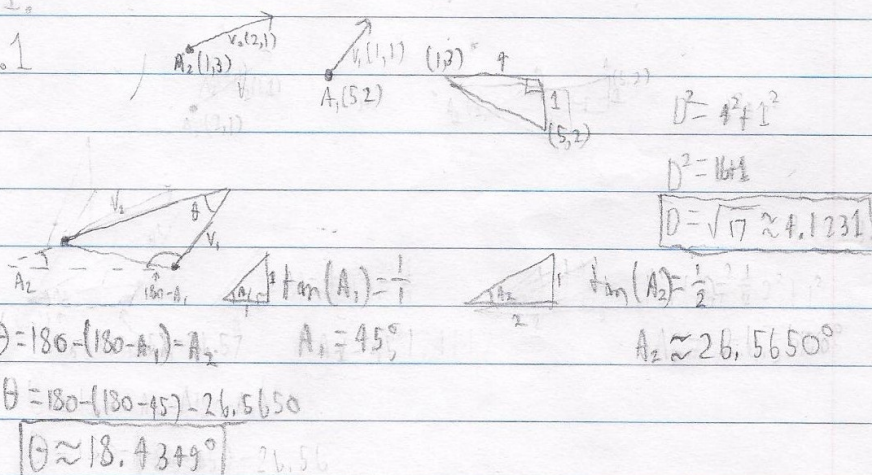 1.
.1
V₂(2,1)
A₂(1,3)
V₁(1,1)
A₁(5,2)
(1,3) 4
1
(5,2)
D²=4²+1²
D²=16+1
D=√17≈4.1231
V₂
θ
V₁
A₂
180-A₁
A₁ 1 1
tan(A₁)=1/1
A₂ 1 2
tan(A₂)=1/2
θ=180-(180-A₁)-A₂
A₁=45°
A₂≈26.5650°
θ=180-(180-45)-26.5650
θ≈18.4349°